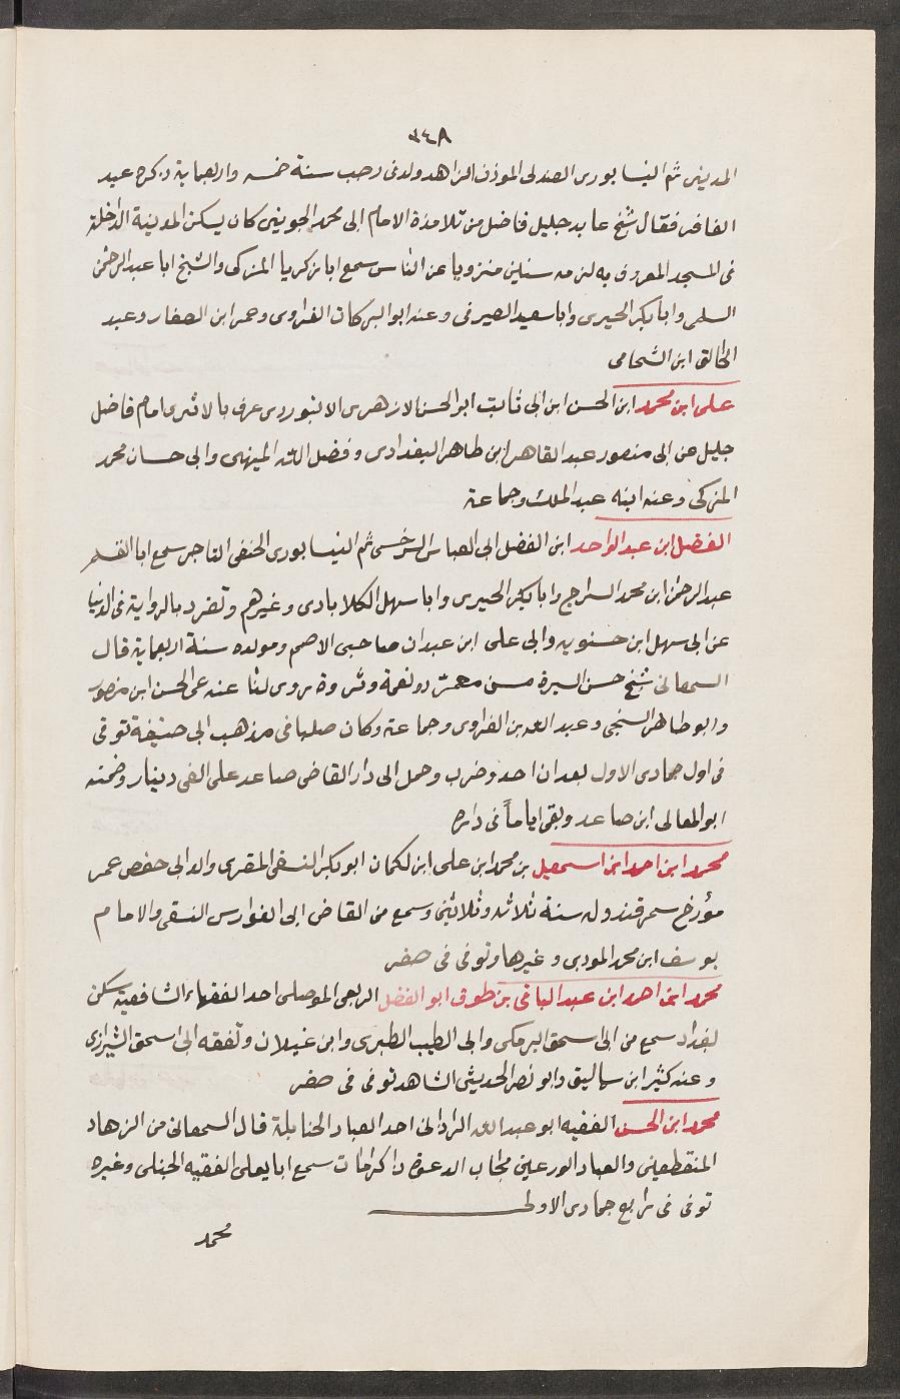 ٣٤٨
المدينى ثم النيسابورى الصندلى المؤذن الزاهد ولد فى رجب سنة خمسه واربعماية ذكره عبد
الغافر فقال شيخ عابد جليل فاضل من تلامذة الامام ابى محمد الجوينى كان يسكن المدينة الداخلة
فى المسجد المعروف به لزمه سنين منزويا عن الناس سمع ابا زكريا المزكى والشيخ ابا عبد الرحمن
السلمى وابا بكر الحيرى وابا سعيد الصيرفى وعنه ابو البركات الفراوى وعمر ابن الصفار وعبد
الخالق ابن الشحامى
على ابن محمد ابن الحسن ابن ابى ثابت ابو الحسن الازهرى الابنوردى عرف بالاثرى امام فاضل
جليل عن ابى منصور عبد القاهر ابن طاهر البغدادى وفضل الله الميهنى وابى حسان محمد
المزكى وعنه ابنه عبد الملك وجماعة
الفضل ابن عبد الواحد ابن الفضل ابى العباس السرخسى ثم النيسابورى الحنفى التاجر سمع ابا القسم
عبد الرحمن ابن محمد السراج وابا بكر الحيرى وابا سهل الكلابادى وغيرهم وتفرد بالرواية فى الدنيا
عن ابى سهل ابن حسنويه وابى على ابن عبدان صاحبى الاصم ومولده سنة اربعماية قال
السمعانى شيخ حسن السيرة مسن معمر ذو نعمة وثروة روى لنا عنه عمى الحسن ابن منصور
وابو طاهر السنجى وعبد الله بن الفراوى وجماعة وكان صلبا فى مذهب ابى حنيفة توفى
فى اول جمادى الاول بعد ان اخذ وضرب وحمل الى دار القاضى صاعد على الفى دينار وضمنه
ابو المعالى ابن صاعد وبقى اياماً فى داره
محمد ابن احمد ابن اسمعيل بن محمد ابن على ابن لكمان ابو بكر النسفى المقرى والد ابى حفص عمر
مؤرخ سمرقند ولد سنة ثلاثه وثلاثين وسمع من القاضى ابى الفوارس النسفى والامام
يوسف ابن محمد المودبى وغيرها وتوفى فى صفر
محمد ابن احمد ابن عبد الباقى بن طوق ابو الفضل الربعى الموصلى احد الفقهاء الشافعية سكن
بغداد سمع من ابى اسحق البرمكى وابى الطيب الطبرى وابن غيلان وتفقه ابى اسحق الشيرازى
وعنه كثير ابن سماليق وابو نصر الحديثى الشاهد توفى فى صفر
محمد ابن الحسن الفقيه ابو عبد الله الراذانى احد العباد الحنابلة قال السمعانى من الزهاد
المنقطعين والعباد الورعين مجاب الدعوة ذا كرامات سمع ابا يعلى الفقيه الحنبلى وغيره
توفى فى رابع جمادى الاولى
محمد